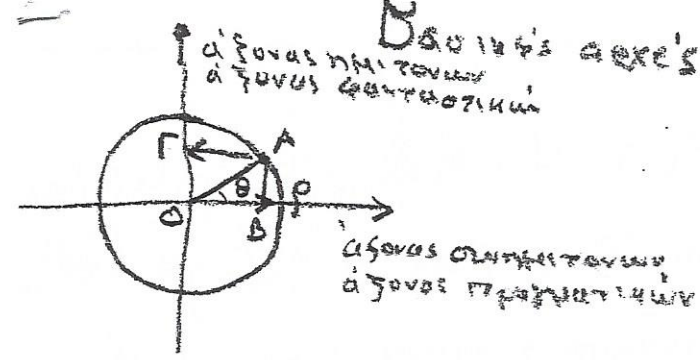 Βασικές αρχές
άξονας ημιτονων
άξονας φανταστικών
Γ
Α
θ
Ο
Β
άξονας συνημιτονων
άξονας πραγματικών